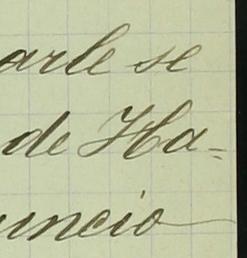 arle se
de Ha-
uncio